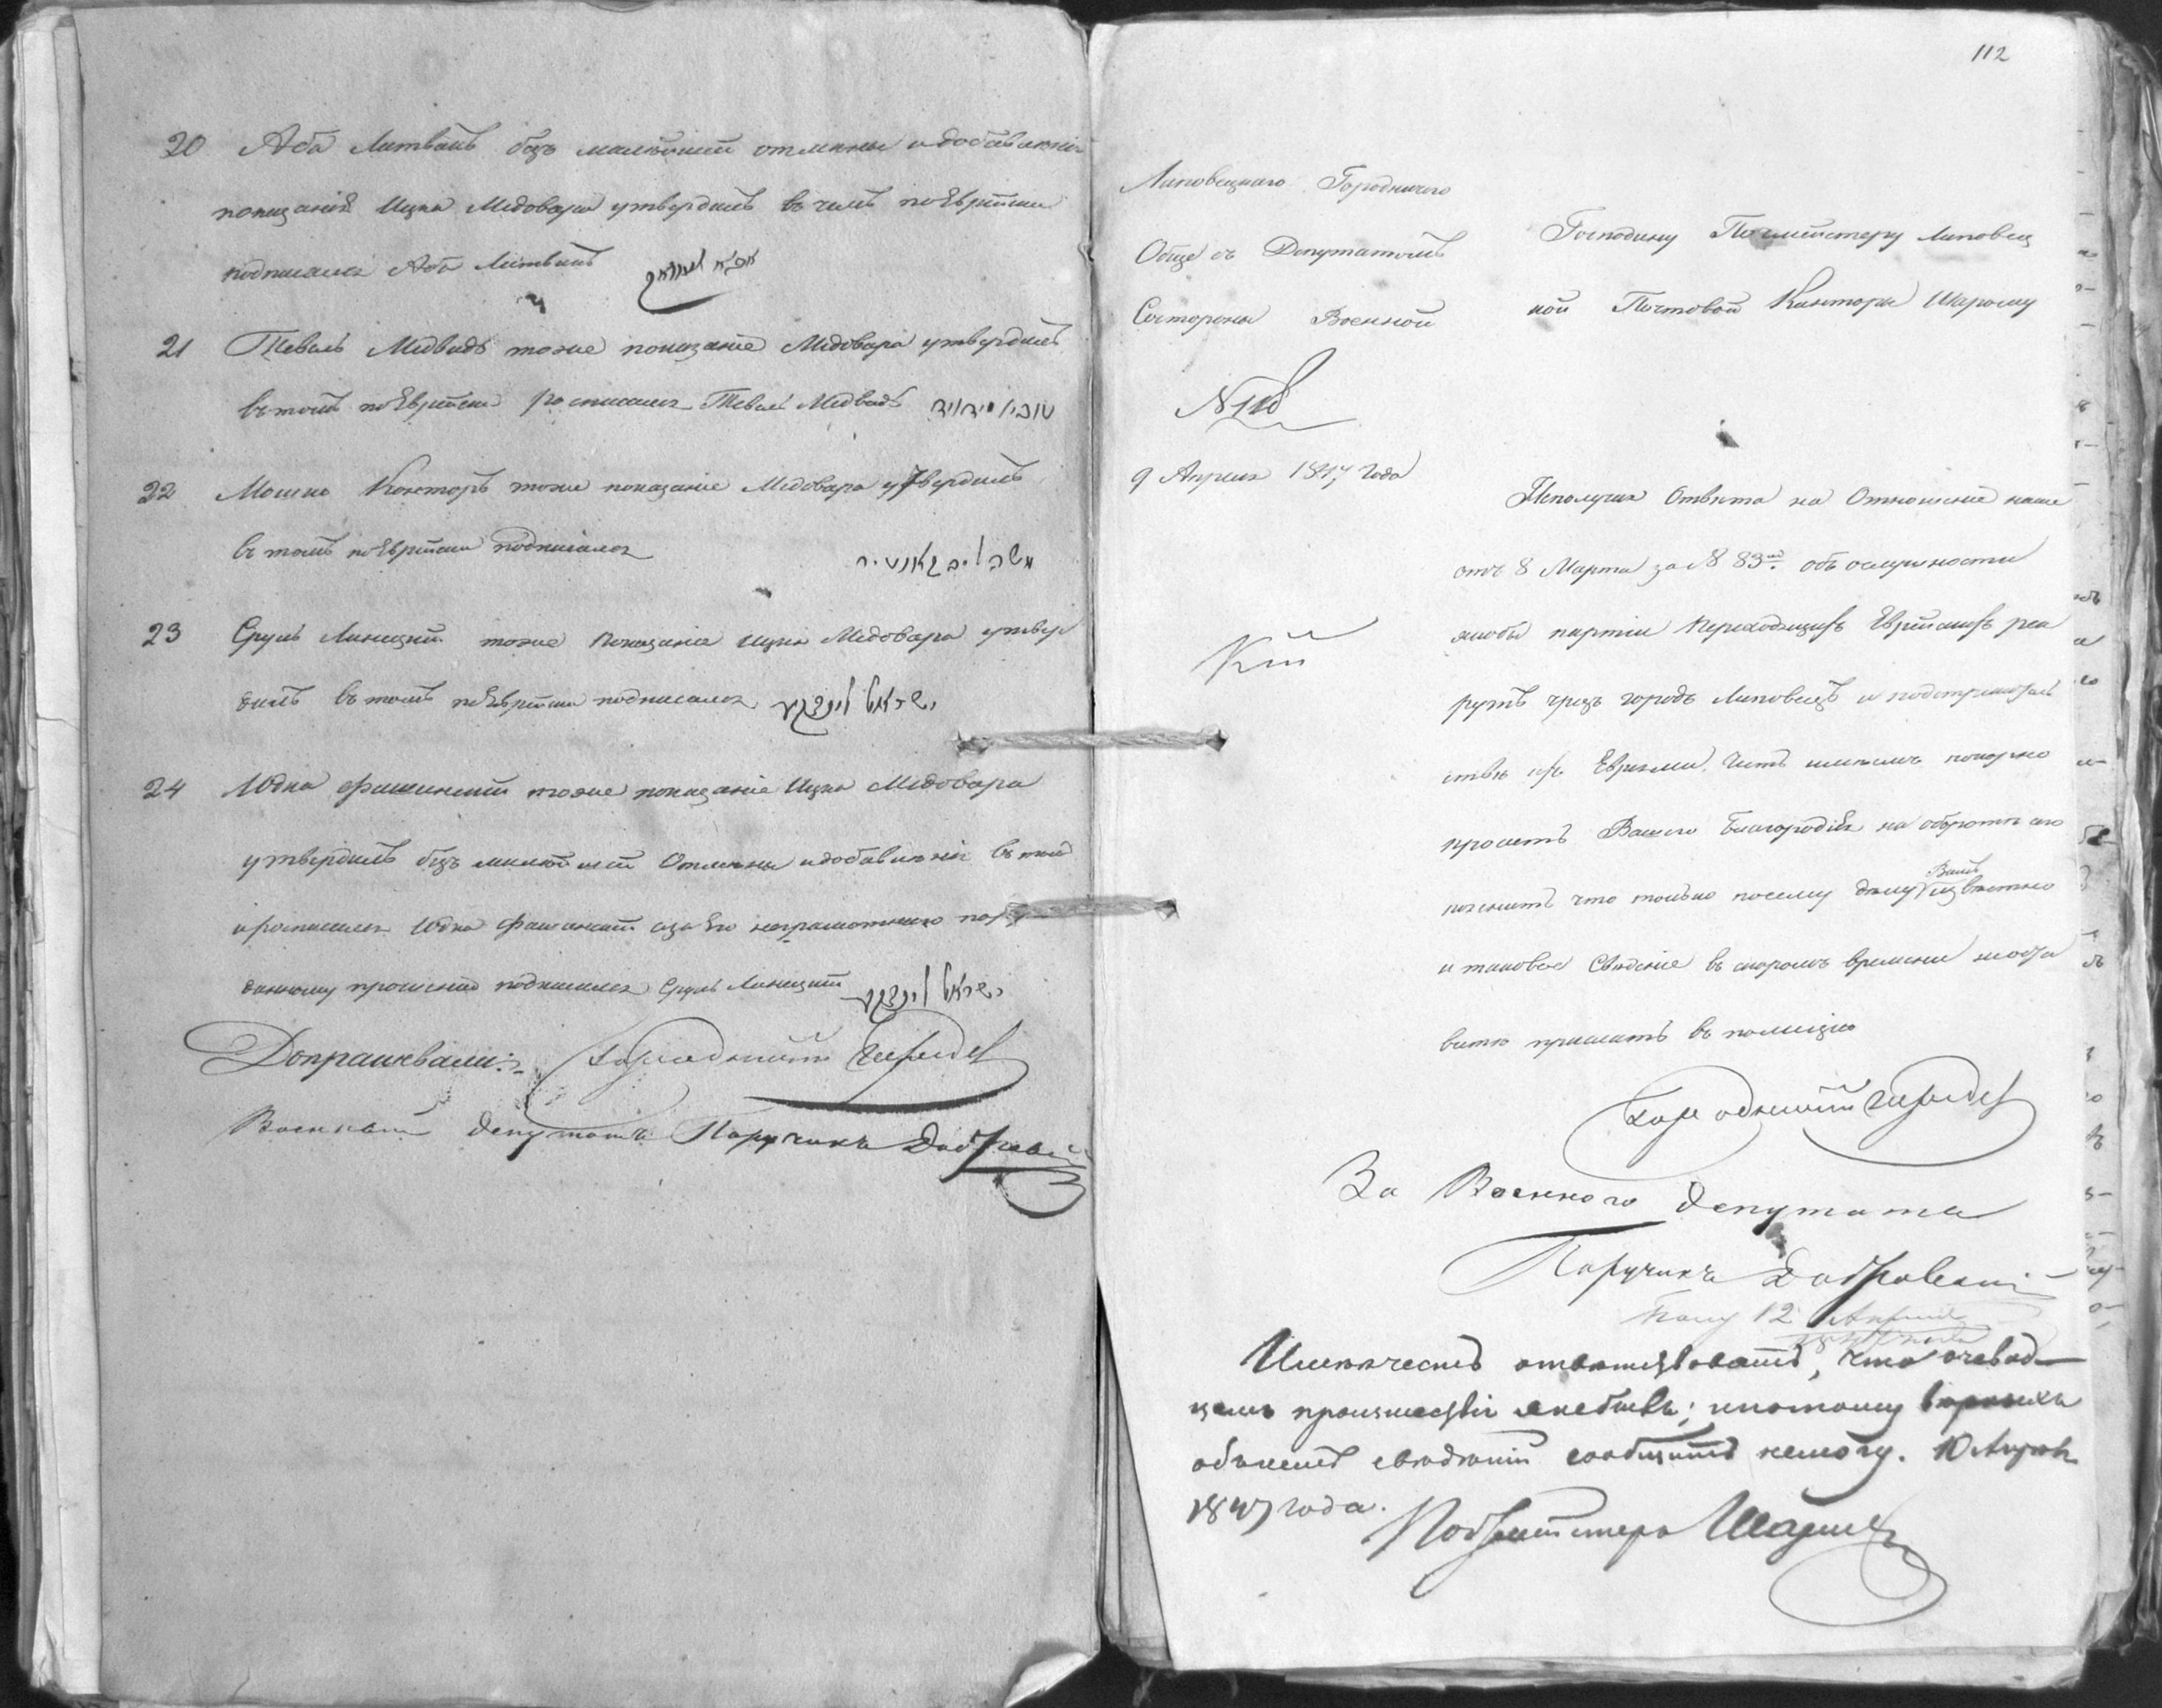 20 Аба Литвакъ безъ малѣйшей отмены и добавленія
показаніе Ицка Медовара утвердилъ въ чемъ по Еврейски
подписался Аба Литвакъ אבא ליטוואק
21 Тевель Медвидь тоже показаніе Медовара утвердилъ
въ томъ по Еврейски росписался Тевель Медвидь
22 Мошко Конторъ тоже показаніе Медовара утвердилъ
въ томъ по Еврейски подписался משה
23 Сруль Линецкій тоже показаніе Ицка Медовара утвер
дилъ въ томъ по Еврейски подписался ישראל לינצקע
24 Юдка Фашинскій тоже показаніе Ицка Медовара
утвердилъ безъ малѣйшей отмены и добавленія въ томъ
и росписался Юдка Фашинскій а за его неграмотнаго по
данному прошенію подписался Сруль Линецкій ישראל לינצקע
Допрашивали:
Городничій
Военный депутатъ Поручикъ
112
Липовецкаго Городничего
Обще съ Депутатомъ
Состороны Военной
9 Апреля 1847 года
Господину Почмейстеру Липовец
кой Почтовой Конторы Шарому
Неполучая Ответа на Отношеніе наше
отъ 8 Марта за № 83мъ объ
якобы партіи переходящихъ Еврейскихъ рек
рутъ чрезъ городъ Липовецъ и
ствѣ ихъ Евреями. Честь имеемъ покорно
просить Вашего Благородія на оборотѣ сего
пояснить что только посему делу Вамъ известно
и таковое Сведеніе въ скоромъ времени необя
вите прислать въ полицію
Городничій
За Военного Депутата
Поручикъ
12 Апреля
Имею честь ответствовать, что очевид
цемъ происшествія я небылъ; и потому
объ немъ сведеній сообщить немогу. 10 Апреля
1847 года.
Почтмейстеръ Шарый